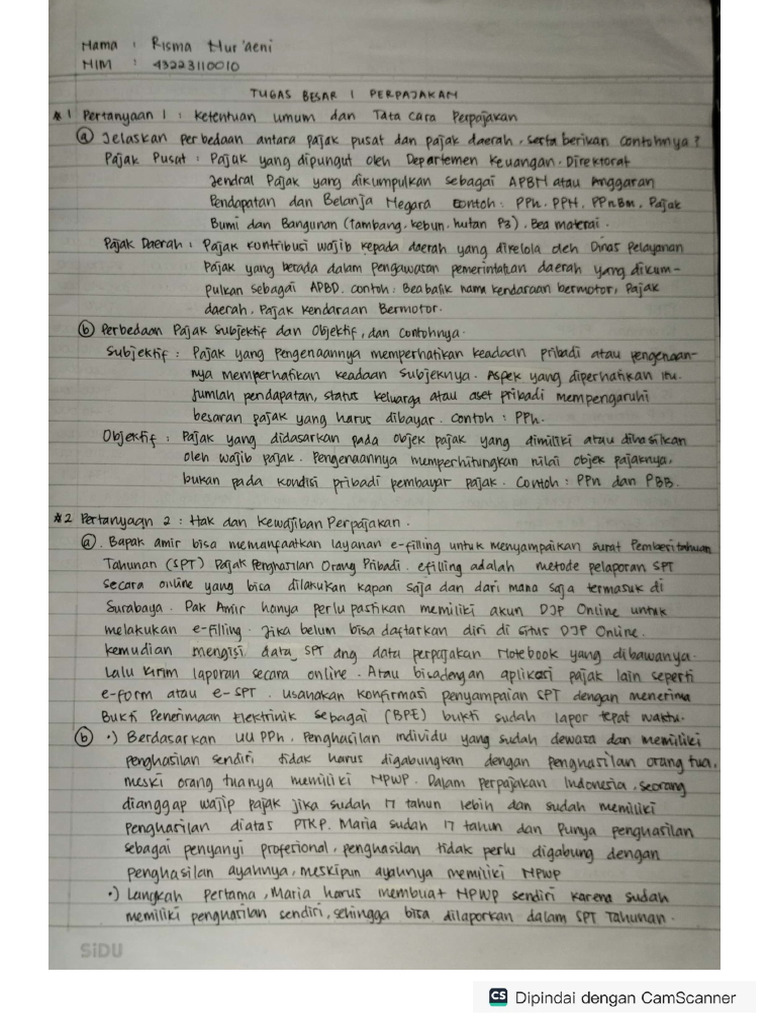 Nama : Risma Nur'aeni
NIM : 43223110010
TUGAS BESAR 1 PERPAJAKAN
*1 Pertanyaan 1 : Ketentuan umum dan Tata Cara Perpajakan
(a) Jelaskan perbedaan antara pajak pusat dan pajak daerah, serta berikan contohnya ?
Pajak Pusat : Pajak yang dipungut oleh Departemen Keuangan. Direktorat
Jendral Pajak yang dikumpulkan sebagai APBN atau Anggaran
Pendapatan dan Belanja Negara Contoh : PPh, PPN, PPnBm, Pajak
Bumi dan Bangunan (tambang, kebun, hutan P3), Bea materai.
Pajak Daerah : Pajak kontribusi wajib kepada daerah yang dikelola oleh Dinas Pelayanan
Pajak yang berada dalam Pengawasan pemerintahan daerah yang dikum-
pulkan sebagai APBD. contoh : Bea balik nama kendaraan bermotor, Pajak
daerah, Pajak kendaraan Bermotor.
(b) Perbedaan Pajak Subjektif dan Objektif, dan Contohnya.
Subjektif : Pajak yang Pengenaannya memperhatikan keadaan pribadi atau pengenaan-
nya memperhatikan keadaan Subjeknya. Aspek yang diperhatikan itu.
Jumlah pendapatan, status keluarga atau aset pribadi mempengaruhi
besaran pajak yang harus dibayar. Contoh : PPh.
Objektif : Pajak yang didasarkan pada objek pajak yang dimiliki atau dihasilkan
oleh wajib pajak. Pengenaannya memperhitungkan nilai objek pajaknya,
bukan pada kondisi pribadi pembayar pajak. Contoh : PPn dan PBB.
*2 Pertanyaan 2 : Hak dan Kewajiban Perpajakan.
(a). Bapak amir bisa memanfaatkan layanan e-filling untuk menyampaikan surat Pemberitahuan
Tahunan (SPT) Pajak Penghasilan Orang Pribadi. efiling adalah metode pelaporan SPT
secara online yang bisa dilakukan kapan saja dan dari mana saja termasuk di
Surabaya. Pak Amir hanya perlu pastikan memiliki akun DJP Online untuk
melakukan e-filling. Jika belum bisa daftarkan diri di situs DJP Online.
kemudian mengisi data SPT dng data perpajakan Notebook yang dibawanya.
Lalu kirim laporan secara online. Atau bisa dengan aplikasi pajak lain seperti
e-form atau e-SPT. usahakan konfirmasi penyampaian SPT dengan menerima
Bukti Penerimaan Elektrinik sebagai (BPE) bukti sudah lapor tepat waktu.
(b) •) Berdasarkan UU PPh, Penghasilan individu yang sudah dewasa dan memiliki
penghasilan sendiri tidak harus digabungkan dengan penghasilan orang tua,
meski orang tuanya memiliki NPWP. Dalam perpajakan Indonesia, seorang
dianggap wajip pajak jika sudah 17 tahun lebih dan sudah memiliki
Penghasilan diatas PTKP. Maria sudah 17 tahun dan Punya penghasilan
sebagai penyanyi profesional, penghasilan tidak perlu digabung dengan
penghasilan ayahnya, meskipun ayahnya memiliki NPWP
•) Langkah Pertama, Maria harus membuat NPWP sendiri karena sudah
memiliki penghasilan sendiri, sehingga bisa dilaporkan dalam SPT Tahunan.
SiDU
CS Dipindai dengan CamScanner